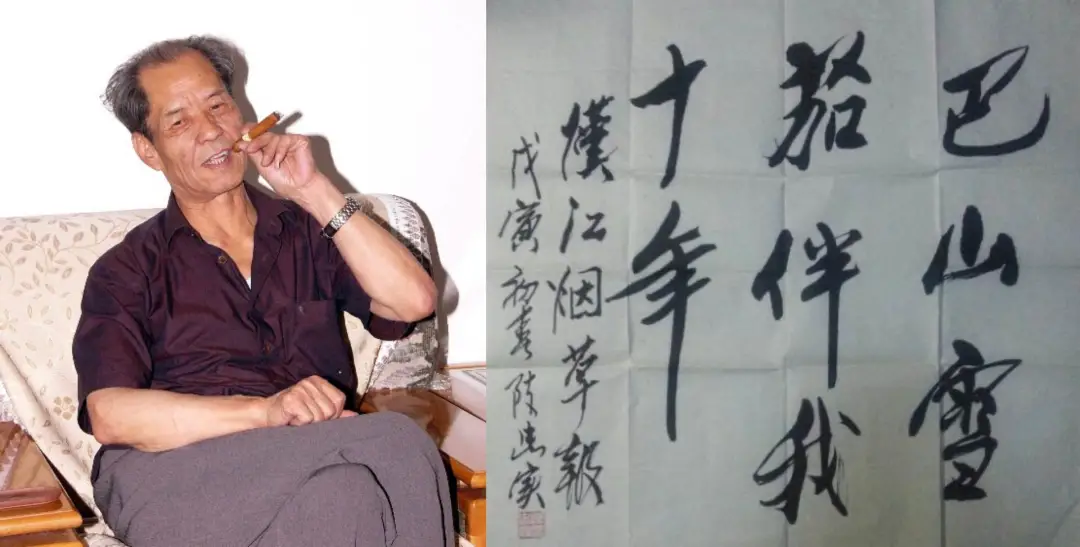 巴山雪
茄伴我
十年
汉江烟草报
戊寅初春 陈忠实